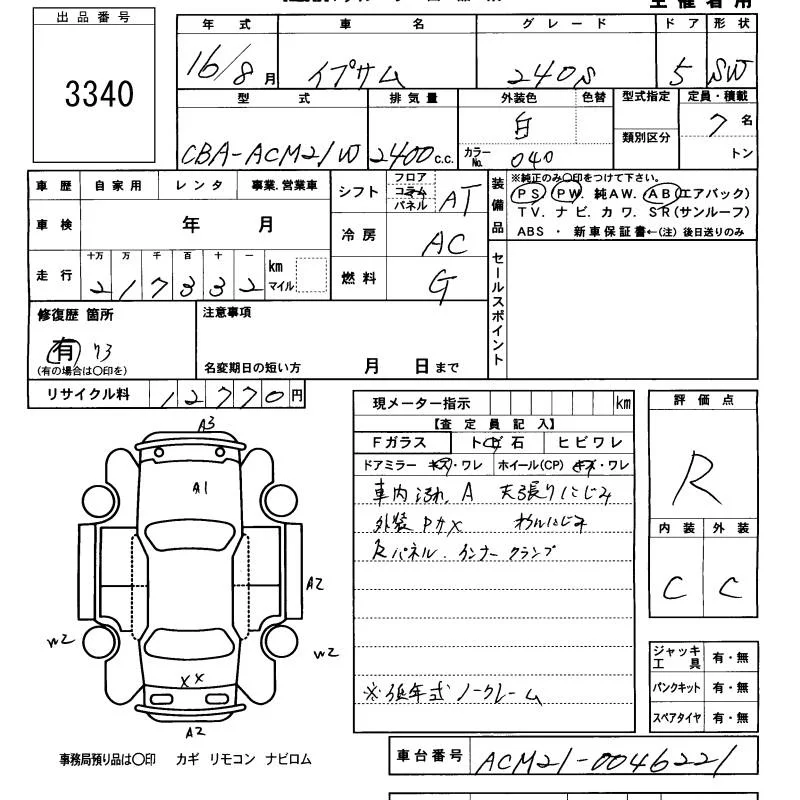 主催者用
出品番号
3340
年式 車名 グレード ドア 形状
16/8月 イプサム 240s 5 SW
型式 排気量 外装色 色替 型式指定 定員・積載
CBA-ACM21W 2400c.c. 白 7名
カラーNo. 040 類別区分 トン
車歴 自家用 レンタ 事業.営業車
車検 年 月
走行 十万 万 千 百 十 一 km マイル
217332
シフト フロア コラム パネル AT
冷房 AC
燃料 G
装備品
※純正のみ〇印をつけて下さい。
PS. PW. 純AW. AB(エアバック)
TV. ナビ. カワ. SR(サンルーフ)
ABS ・ 新車保証書←(注) 後日送りのみ
セールスポイント
修復歴 箇所
有 ワケ
(有の場合は〇印を)
注意事項
名変期日の短い方 月 日まで
リサイクル料 12770円
現メーター指示 km
【査定員記入】
Fガラス トビ石 ヒビワレ
ドアミラー キズ・ワレ ホイール(CP) キズ・ワレ
車内 汚れ A 天張りにじみ
外装 Pカメ
Rパネル. インナー クランプ
※低年式 ノークレーム
評価点
R
内装 外装
C C
A3
A1
A2
W2
W2
XX
A2
ジャッキ工具 有・無
パンクキット 有・無
スペアタイヤ 有・無
事務局預り品は〇印 カギ リモコン ナビロム
車台番号 ACM21-0046221